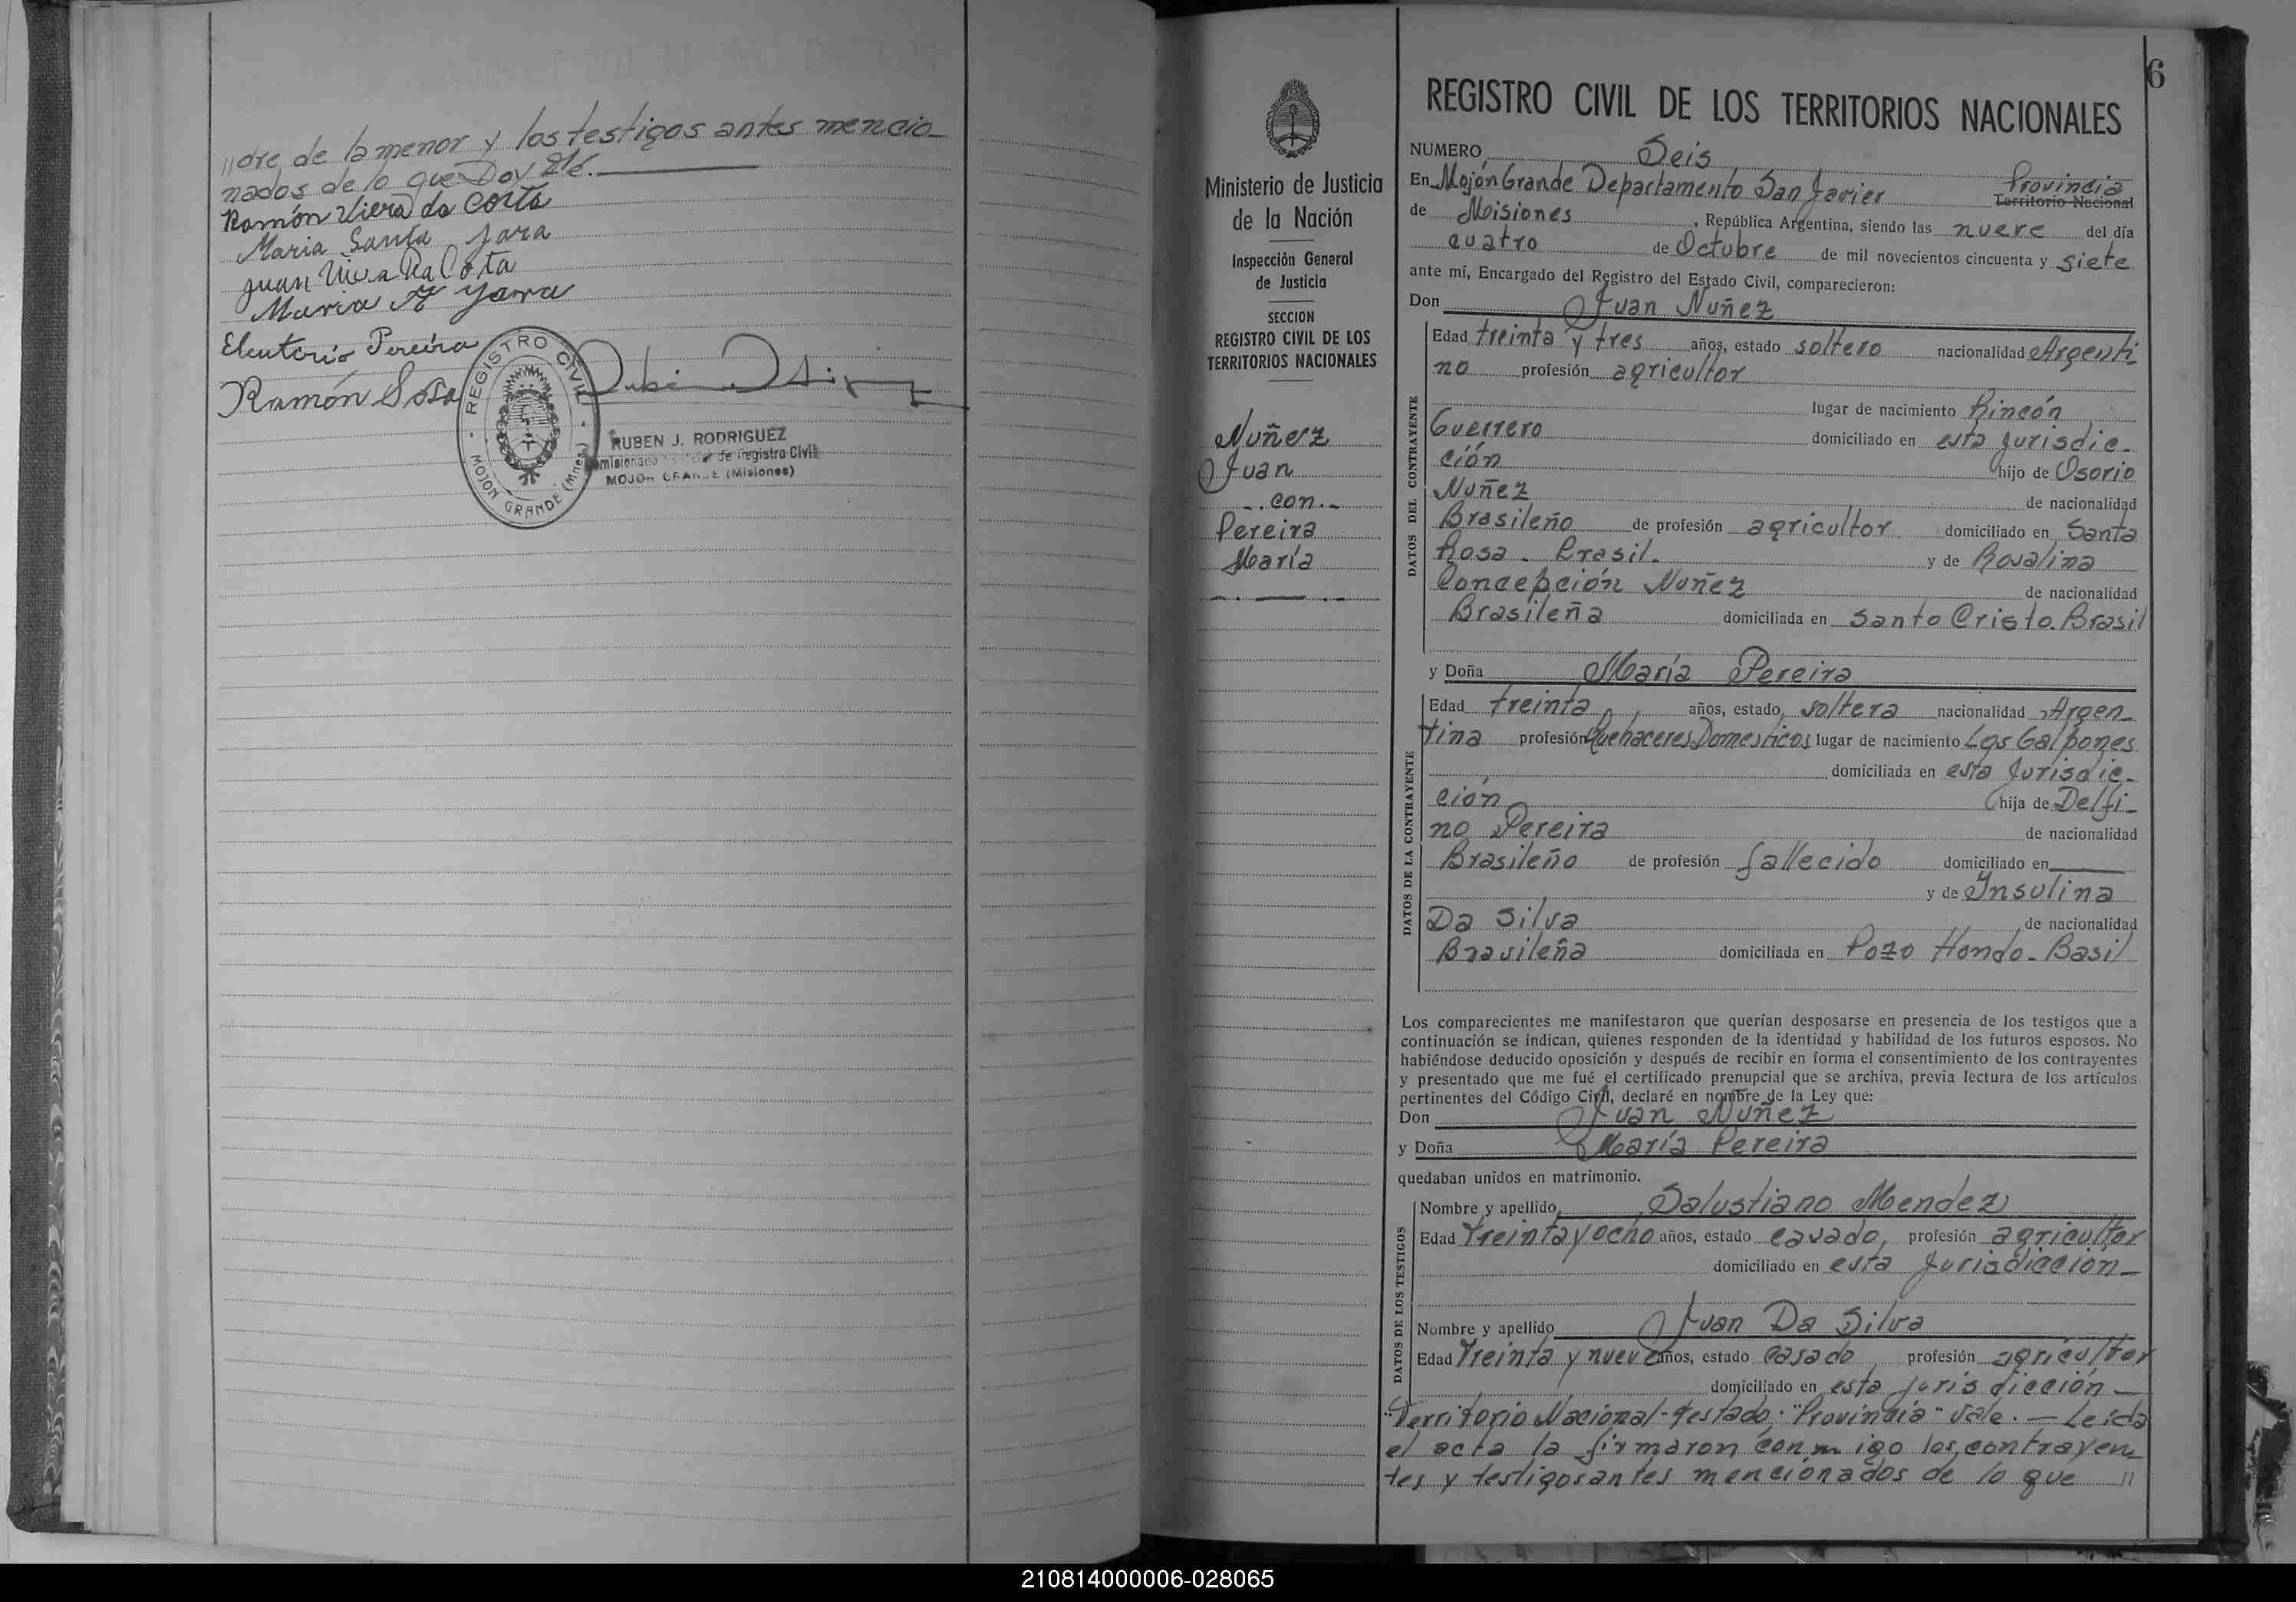 //dre de la menor y los testigos antes mencio-
nados de lo que Doy Fé.
Ramón Viera da Costa
Maria Santa Jara
Juan Viera Da Costa
Maria Jara
Eleuterio Pereira
Ramón Sosa
REGISTRO CIVIL
MOJON GRANDE (Mnes)
RUBEN J. RODRIGUEZ
de Registro Civil
MOJON GRANDE (Misiones)
6
Ministerio de Justicia
de la Nación
Inspección General
de Justicia
SECCION
REGISTRO CIVIL DE LOS
TERRITORIOS NACIONALES
Nuñez
Juan
con
Pereira
María
REGISTRO CIVIL DE LOS TERRITORIOS NACIONALES
NUMERO Seis
En Mojón Grande Departamento San Javier Provincia Territorio Nacional
de Misiones, República Argentina, siendo las nueve del día
cuatro de Octubre de mil novecientos cincuenta y siete
ante mí, Encargado del Registro del Estado Civil, comparecieron:
Don Juan Nuñez
DATOS DEL CONTRAYENTE
Edad treinta y tres años, estado soltero nacionalidad Argenti-
no profesión agricultor
lugar de nacimiento Rincón
Guerrero domiciliado en esta Jurisdic-
ción hijo de Osorio
Nuñez de nacionalidad
Brasileño de profesión agricultor domiciliado en Santa
Rosa - Brasil. y de Rosalina
Concepción Nuñez de nacionalidad
Brasileña domiciliada en Santo Cristo. Brasil
y Doña María Pereira
DATOS DE LA CONTRAYENTE
Edad treinta años, estado soltera nacionalidad Argen-
tina profesión Quehaceres Domesticos lugar de nacimiento Los Galpones
domiciliada en esta Jurisdic-
ción hija de Delfi-
no Pereira de nacionalidad
Brasileño de profesión fallecido domiciliado en
y de Insulina
Da Silva de nacionalidad
Brasileña domiciliada en Pozo Hondo - Basil
Los comparecientes me manifestaron que querían desposarse en presencia de los testigos que a
continuación se indican, quienes responden de la identidad y habilidad de los futuros esposos. No
habiéndose deducido oposición y después de recibir en forma el consentimiento de los contrayentes
y presentado que me fué el certificado prenupcial que se archiva, previa lectura de los artículos
pertinentes del Código Civil, declaré en nombre de la Ley que:
Don Juan Nuñez
y Doña María Pereira
quedaban unidos en matrimonio.
DATOS DE LOS TESTIGOS
Nombre y apellido Salustiano Mendez
Edad treinta y ocho años, estado casado, profesión agricultor
domiciliado en esta Jurisdicción-
Nombre y apellido Juan Da Silva
Edad treinta y nueve años, estado casado profesión agricultor
domiciliado en esta jurisdicción-
"Territorio Nacional - testado. "Provincia" vale. - Leída
el acta la firmaron con migo los contrayen
tes y testigos antes mencionados de lo que //
210814000006-028065